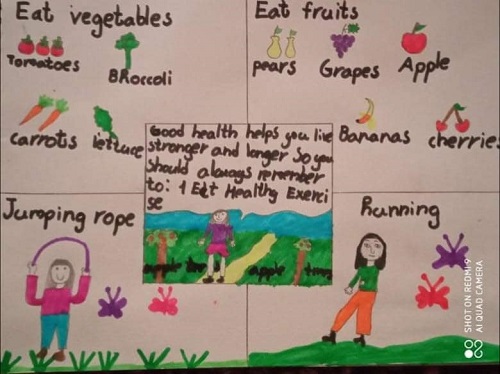 Eat vegetables
Tomatoes
BRoccoli
carrotis
lettuce
Eat fruits
pears
Grapes
Apple
Bananas
cherries
Good health helps you live
stronger and longer So you
should always remember
to: 1 Eat Healthy Exerci
se
apple
Jumping rope
Running
SHOT ON REDMI 9
AI QUAD CAMERA